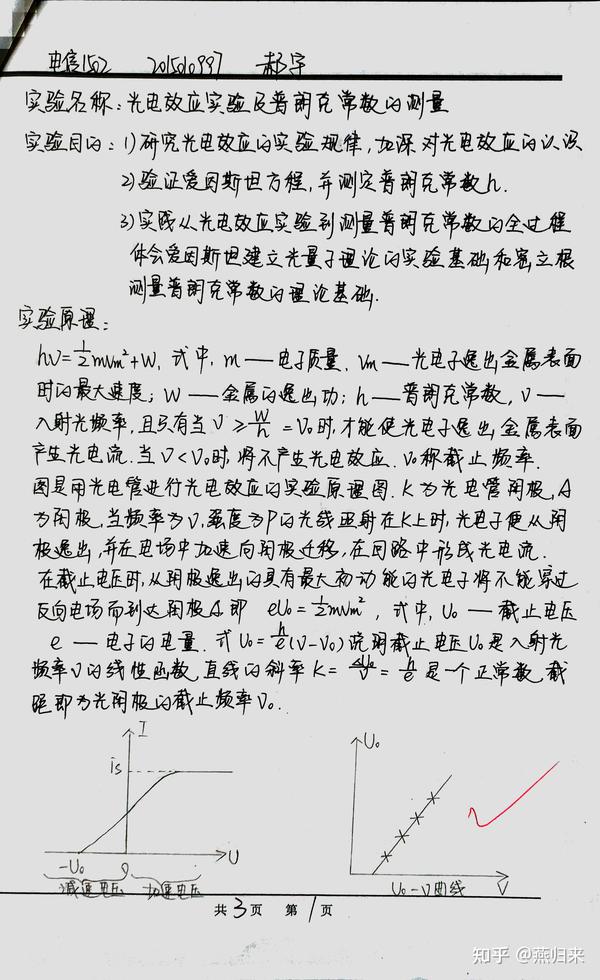 电信1502 2015010997 郝宇
实验名称:光电效应实验及普朗克常数的测量
实验目的:1)研究光电效应的实验规律,加深对光电效应的认识
2)验证爱因斯坦方程,并测定普朗克常数h.
3)实践从光电效应实验到测量普朗克常数的全过程
体会爱因斯坦建立光量子理论的实验基础和密立根
测量普朗克常数的理论基础.
实验原理:
hν=½mVm²+W. 式中, m——电子质量. Vm——光电子逸出金属表面
时的最大速度; W——金属的逸出功; h——普朗克常数, ν——
入射光频率, 且只有当 ν≥W/h=ν₀时,才能使光电子逸出金属表面
产生光电流. 当ν<ν₀时,将不产生光电效应. ν₀称截止频率.
图是用光电管进行光电效应的实验原理图. K为光电管阴极, A
为阳极, 当频率为ν,强度为P的光线照射在K上时,光电子便从阴
极逸出,并在电场中加速向阳极迁移,在回路中形成光电流.
在截止电压时,从阴极逸出的具有最大初动能的光电子将不能穿过
反向电场而到达阳极A即 eU₀=½mVm², 式中, U₀——截止电压
e——电子的电量. 式U₀=h/e(ν-ν₀)说明截止电压U₀是入射光
频率ν的线性函数,直线的斜率K= =h/e是一个正常数,截
距即为光阴极的截止频率ν₀.
I
is
-U₀ 0 U
减速电压 加速电压
U₀
ν
U₀-ν曲线
共3页 第1页
知乎 @燕归来